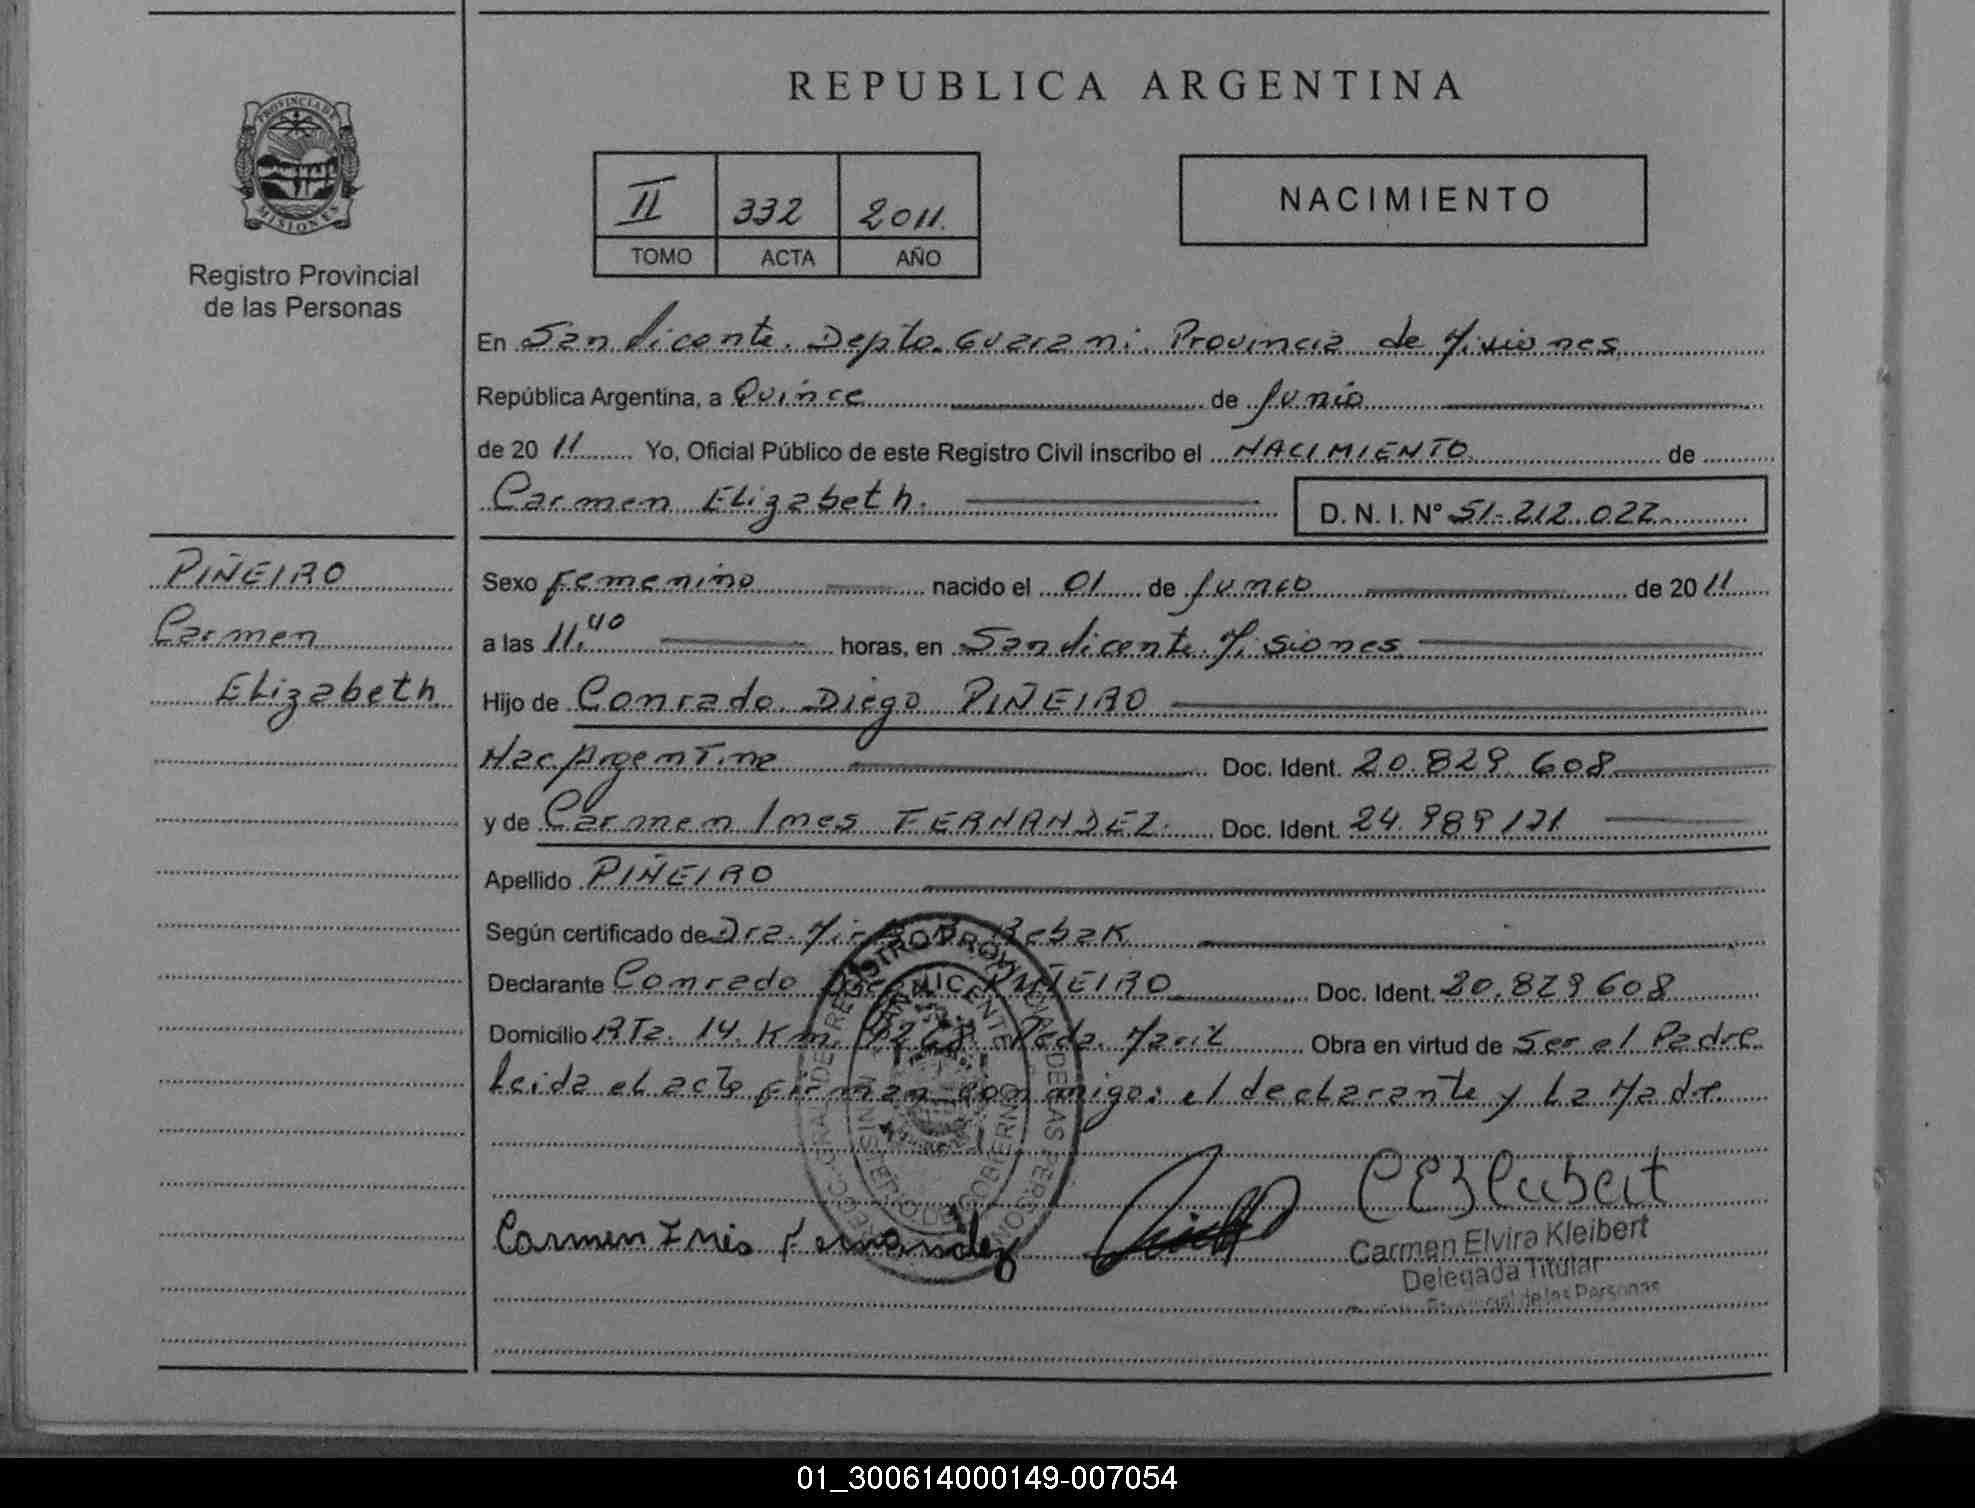 REPUBLICA ARGENTINA
PROVINCIA DE
MISIONES
Registro Provincial
de las Personas
II 332 2011.
TOMO ACTA AÑO
NACIMIENTO
En San Vicente. Depto. Guarani. Provincia de Misiones
República Argentina, a Quince de Junio
de 2011 Yo, Oficial Público de este Registro Civil inscribo el NACIMIENTO de
Carmen Elizabeth. D. N. I. N° 51-212.022
PIÑEIRO
Carmen
Elizabeth
Sexo Femenino nacido el 01 de Junio de 2011
a las 11,40 horas, en San Vicente. Misiones
Hijo de Conrado Diego PIÑEIRO
Nac. Argentina Doc. Ident. 20.829.608
y de Carmen Ines FERNANDEZ. Doc. Ident. 24.989.121
Apellido PIÑEIRO
Según certificado de Dra. Rebak
Declarante Conrado Diego PIÑEIRO Doc. Ident. 20.829.608
Domicilio RTa. 14. Km. Obra en virtud de Ser el Padre
Leida el acta firman conmigo: el declarante y La Madre.
REGISTRO PROVINCIAL DE LAS PERSONAS
SAN VICENTE
MINISTERIO DE GOBIERNO
Carmen Inés Fernández
CEKleibert
Carmen Elvira Kleibert
Delegada Titular
Provincial de las Personas
01_300614000149-007054